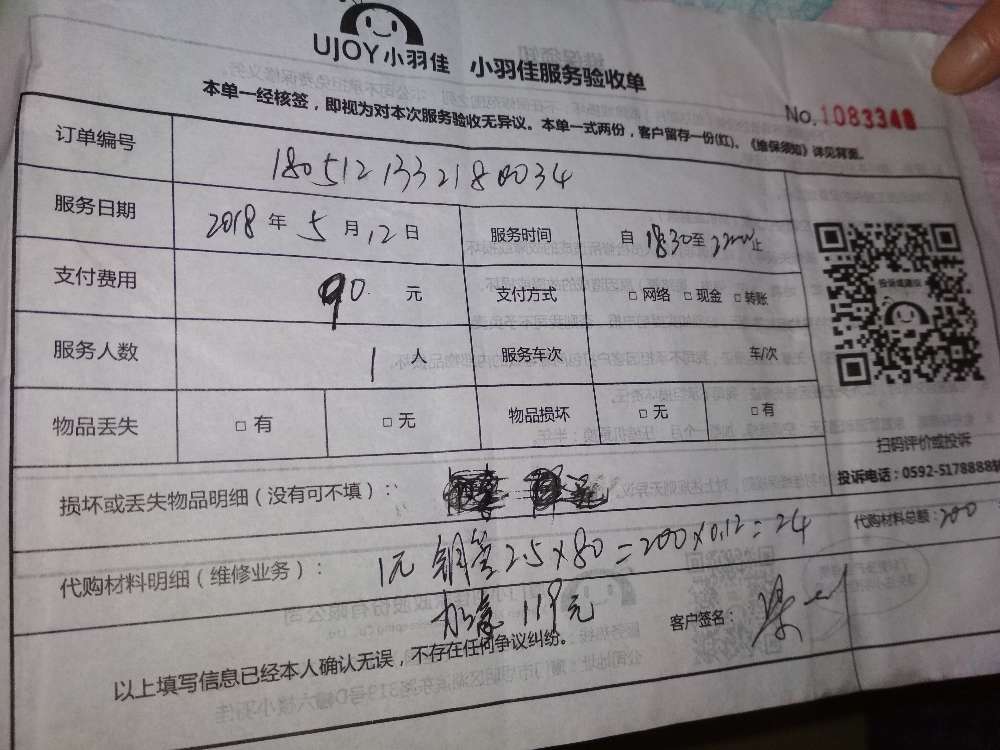 UJOY小羽佳 小羽佳服务验收单
No.1083348
本单一经核签，即视为对本次服务验收无异议。本单一式两份，客户留存一份(红)。《维保须知》详见背面。
订单编号 180512133218034
服务日期 2018年5月12日 服务时间 自18:30至22:00止
支付费用 90元 支付方式 □网络 □现金 □转账
服务人数 1人 服务车次 车/次
物品丢失 □有 □无 物品损坏 □无 □有
投诉或建议
扫码评价或投诉
投诉电话：0592-5178888转
损坏或丢失物品明细（没有可不填）：
代购材料明细（维修业务）： 1元 铜管2.5×80=200×0.12=24 代购材料总额：200
119元 客户签名：
以上填写信息已经本人确认无误，不存在任何争议纠纷。